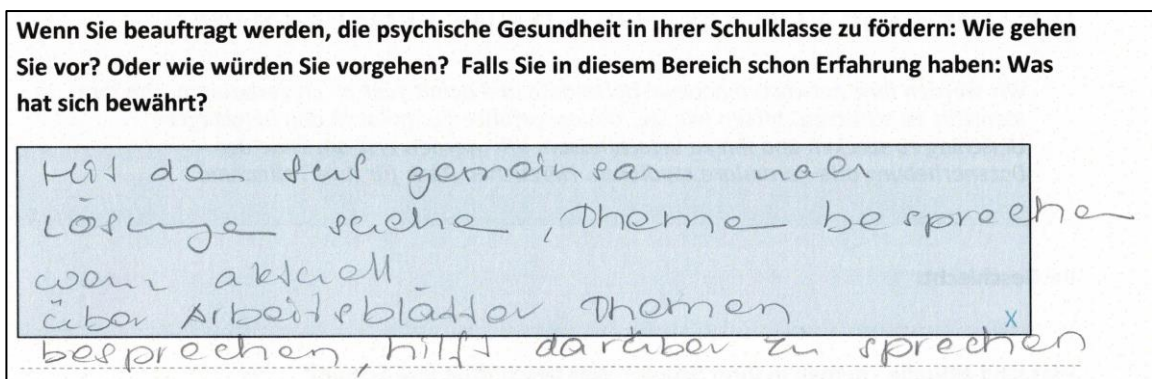 Wenn Sie beauftragt werden, die psychische Gesundheit in Ihrer Schulklasse zu fördern: Wie gehen
Sie vor? Oder wie würden Sie vorgehen? Falls Sie in diesem Bereich schon Erfahrung haben: Was
hat sich bewährt?
Mit den SuS gemeinsam nach
Lösungen suchen, Themen besprechen
wenn aktuell
über Arbeitsblätter Themen
x
besprechen, hilft darüber zu sprechen